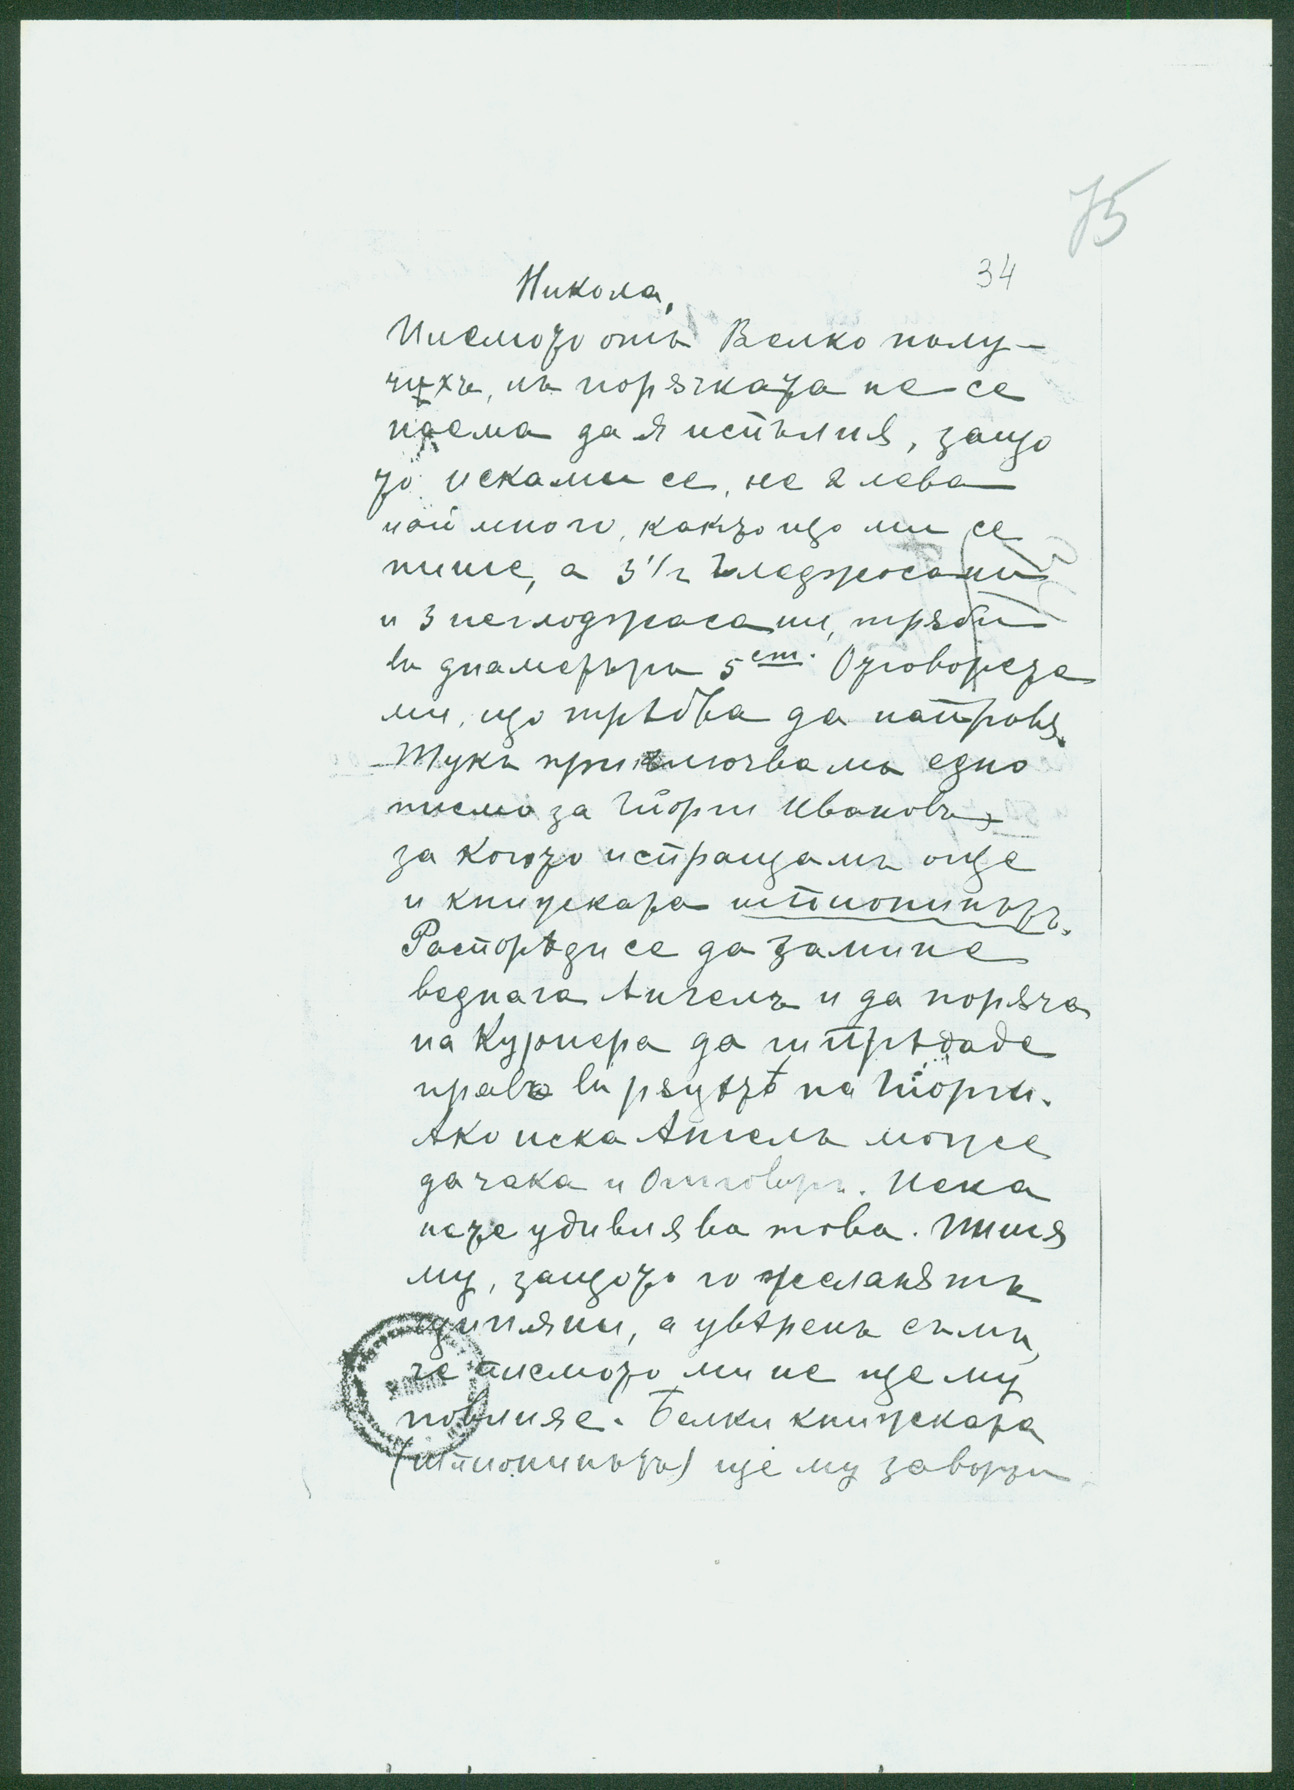 75
34
Никола,
Писмото отъ Велко полу-
чихъ, нъ порѫчката не се
наема да я испълня, защо
то исками се, не 2 лева
най много, както що ми се
пише, а 3½ гледжосани
и 3 негледжосани, трѫби
въ диаметъръ 5 ст. Отговорете
ми, що трѣбва да направѭ.
Тукъ приключвамъ едно
писмо за Гьорги Ивановъ,
за когото испращамъ още
и книжката шпионинътъ.
Распорѣди се да замине
веднага Ангелъ и да порѫча
на Куриера да ги прѣдаде
право въ рѫцѣтѣ на Гьорги.
Ако иска Ангелъ може
да чака и отговоръ. Нека
не те удивлява това. Пиша
му, защото го желаяѭтъ
ципяни, а увѣренъ съмъ,
че писмото ми не ще му
повлияе. Белки книжката
(шпионинътъ) ще му завърти